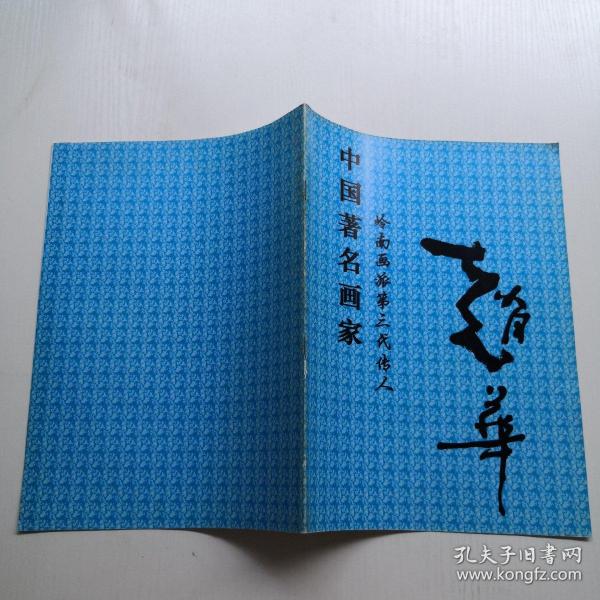 中国著名画家
岭南画派第三代传人
趙華
孔夫子旧书网
www.kongfz.com